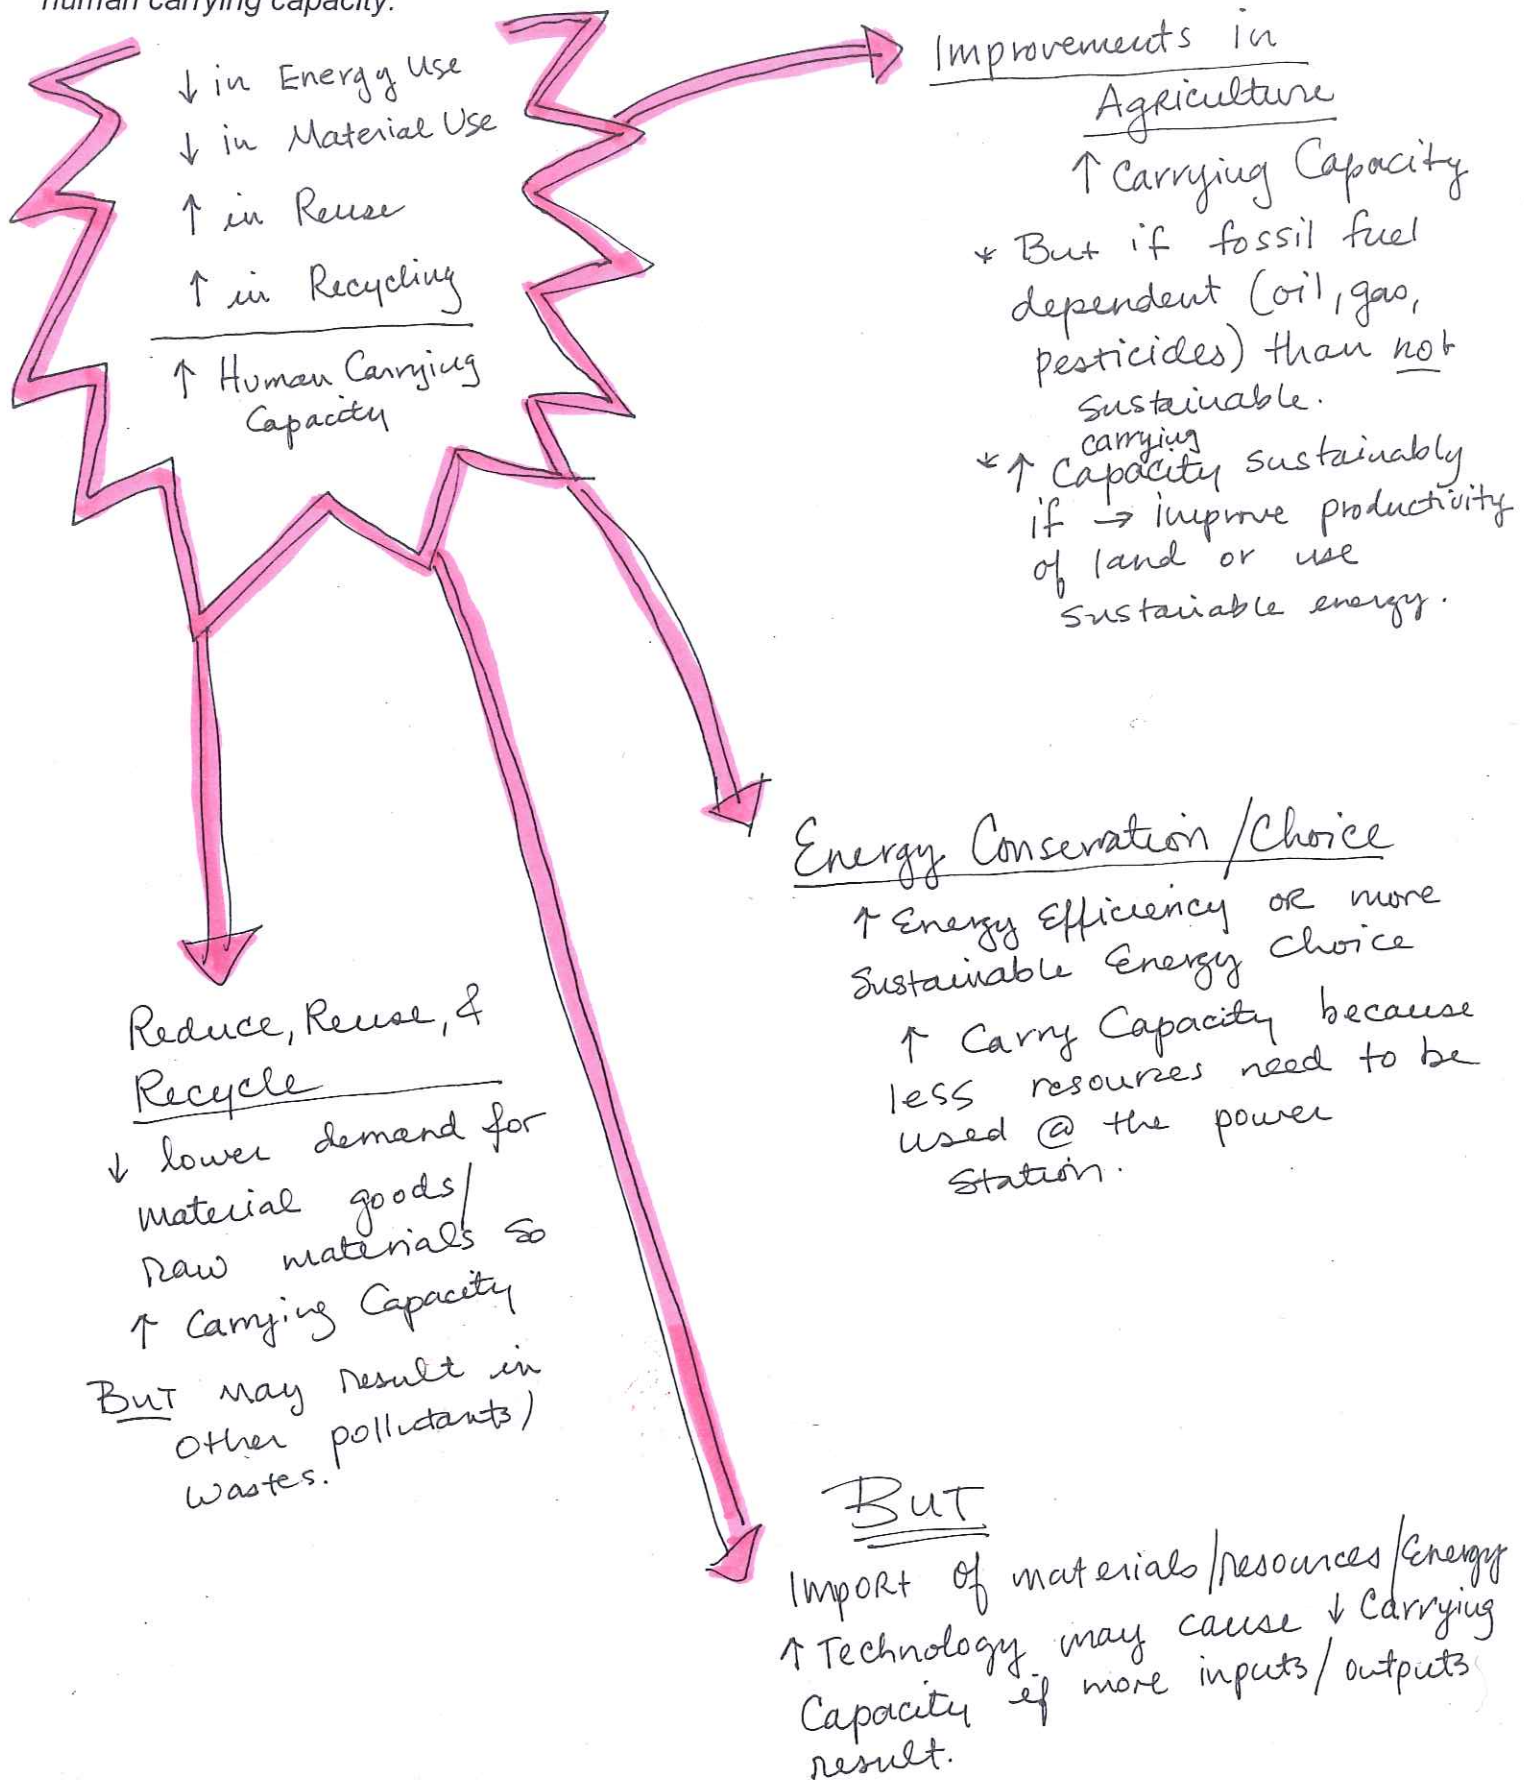 human carrying capacity.
↓ in Energy Use
↓ in Material Use
↑ in Reuse
↑ in Recycling
↑ Human Carrying
Capacity
Improvements in
Agriculture
↑ Carrying Capacity
* But if fossil fuel
dependent (oil, gas,
pesticides) than not
sustainable.
carrying
* ↑ Capacity sustainably
if → improve productivity
of land or use
sustainable energy.
Energy Conservation/Choice
↑ Energy Efficiency OR more
Sustainable Energy Choice
↑ Carry Capacity because
less resources need to be
used @ the power
Station.
Reduce, Reuse, &
Recycle
↓ lower demand for
material goods/
raw materials so
↑ Carrying Capacity
BUT may result in
other pollutants/
wastes.
BUT
Import of materials/resources/Energy
↑ Technology may cause ↓ Carrying
Capacity if more inputs/outputs
result.